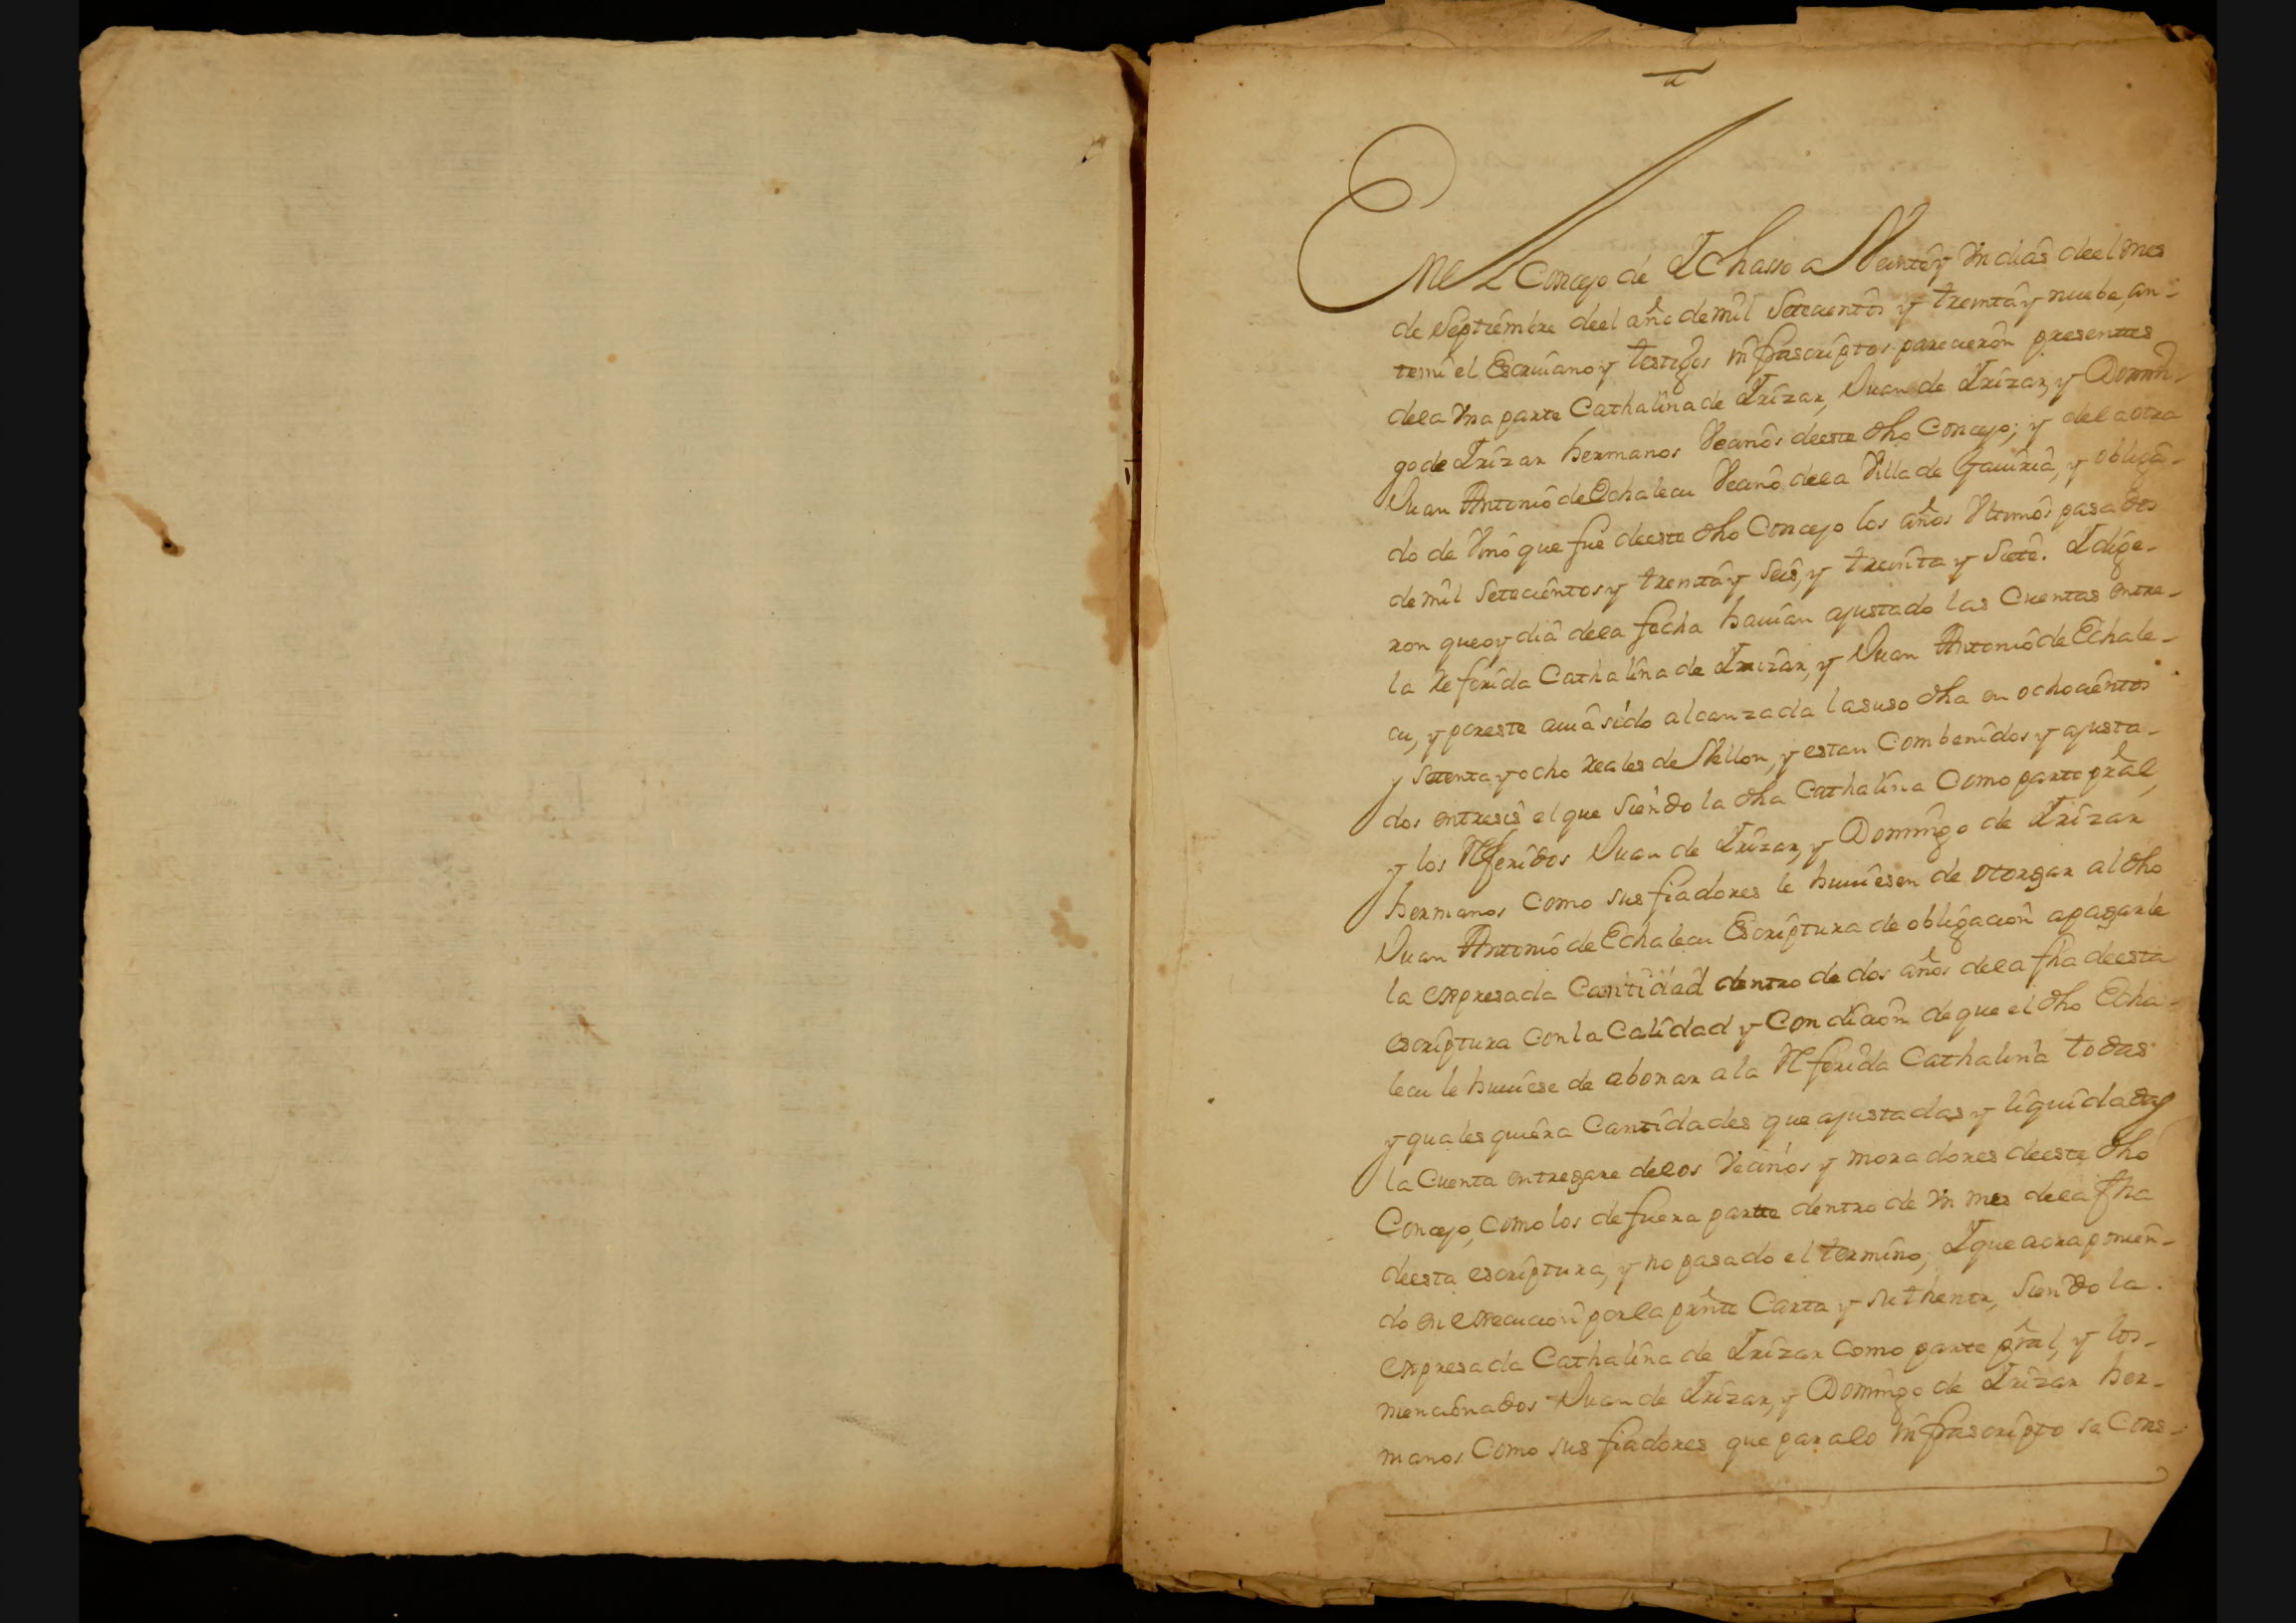 En el Concejo de Ychasso a Veinte y Vn dias deel mes
de Septiembre deel año de mil Setecientos y treinta y nuebe, an-
te mi el Escriuano y testigos infrascriptos parecieron presentes
dela Vna parte Cathalina de Yrizar, Juan de Yrizar, y Domin-
go de Yrizar hermanos Vecinos deeste dho Concejo; y dela otra
Juan Antonio de Echalecu Vecino dela Villa de Gauiria, y obliga-
do de Vino que fue deeste dho Concejo los años Vltimos pasados
de mil Setecientos y treinta y Seis, y treinta y Siete. Y dige-
ron que oy dia dela fecha hauian ajustado las Cuentas entre-
la referida Cathalina de Yrizar, y Juan Antonio de Echale-
cu, y por este auia sido alcanzada la suso dha en ochocientos
y Setenta y ocho reales de Vellon, y estan Combenidos y ajusta-
dos entre sis el que Siendo la dha Cathalina Como parte pral,
y los Referidos Juan de Yrizar, y Domingo de Yrizar
hermanos Como sus fiadores le huuiesen de otorgar al dho
Juan Antonio de Echalecu Escriptura de obligacion a pagarle
la expresada Cantidad dentro de dos años dela fha deesta
escriptura con la Calidad y Condicion de que el dho Echa-
lecu le huuiese de abonar a la Referida Cathalina todas
y quales quiera Cantidades que ajustadas y liquidadas
la Cuenta entregare delos Vecinos y moradores deeste dho
Concejo, como los de fuera parte dentro de Vn mes dela fha
deesta escriptura, y no pasado el termino; Y que aora ponien-
do en execucion por la prnte Carta y su thenor, Siendo la
expresada Cathalina de Yrizar Como parte pral, y los-
mencionados Juan de Yrizar, y Domingo de Yrizar her-
manos Como sus fiadores que para lo infrascripto se Cons-